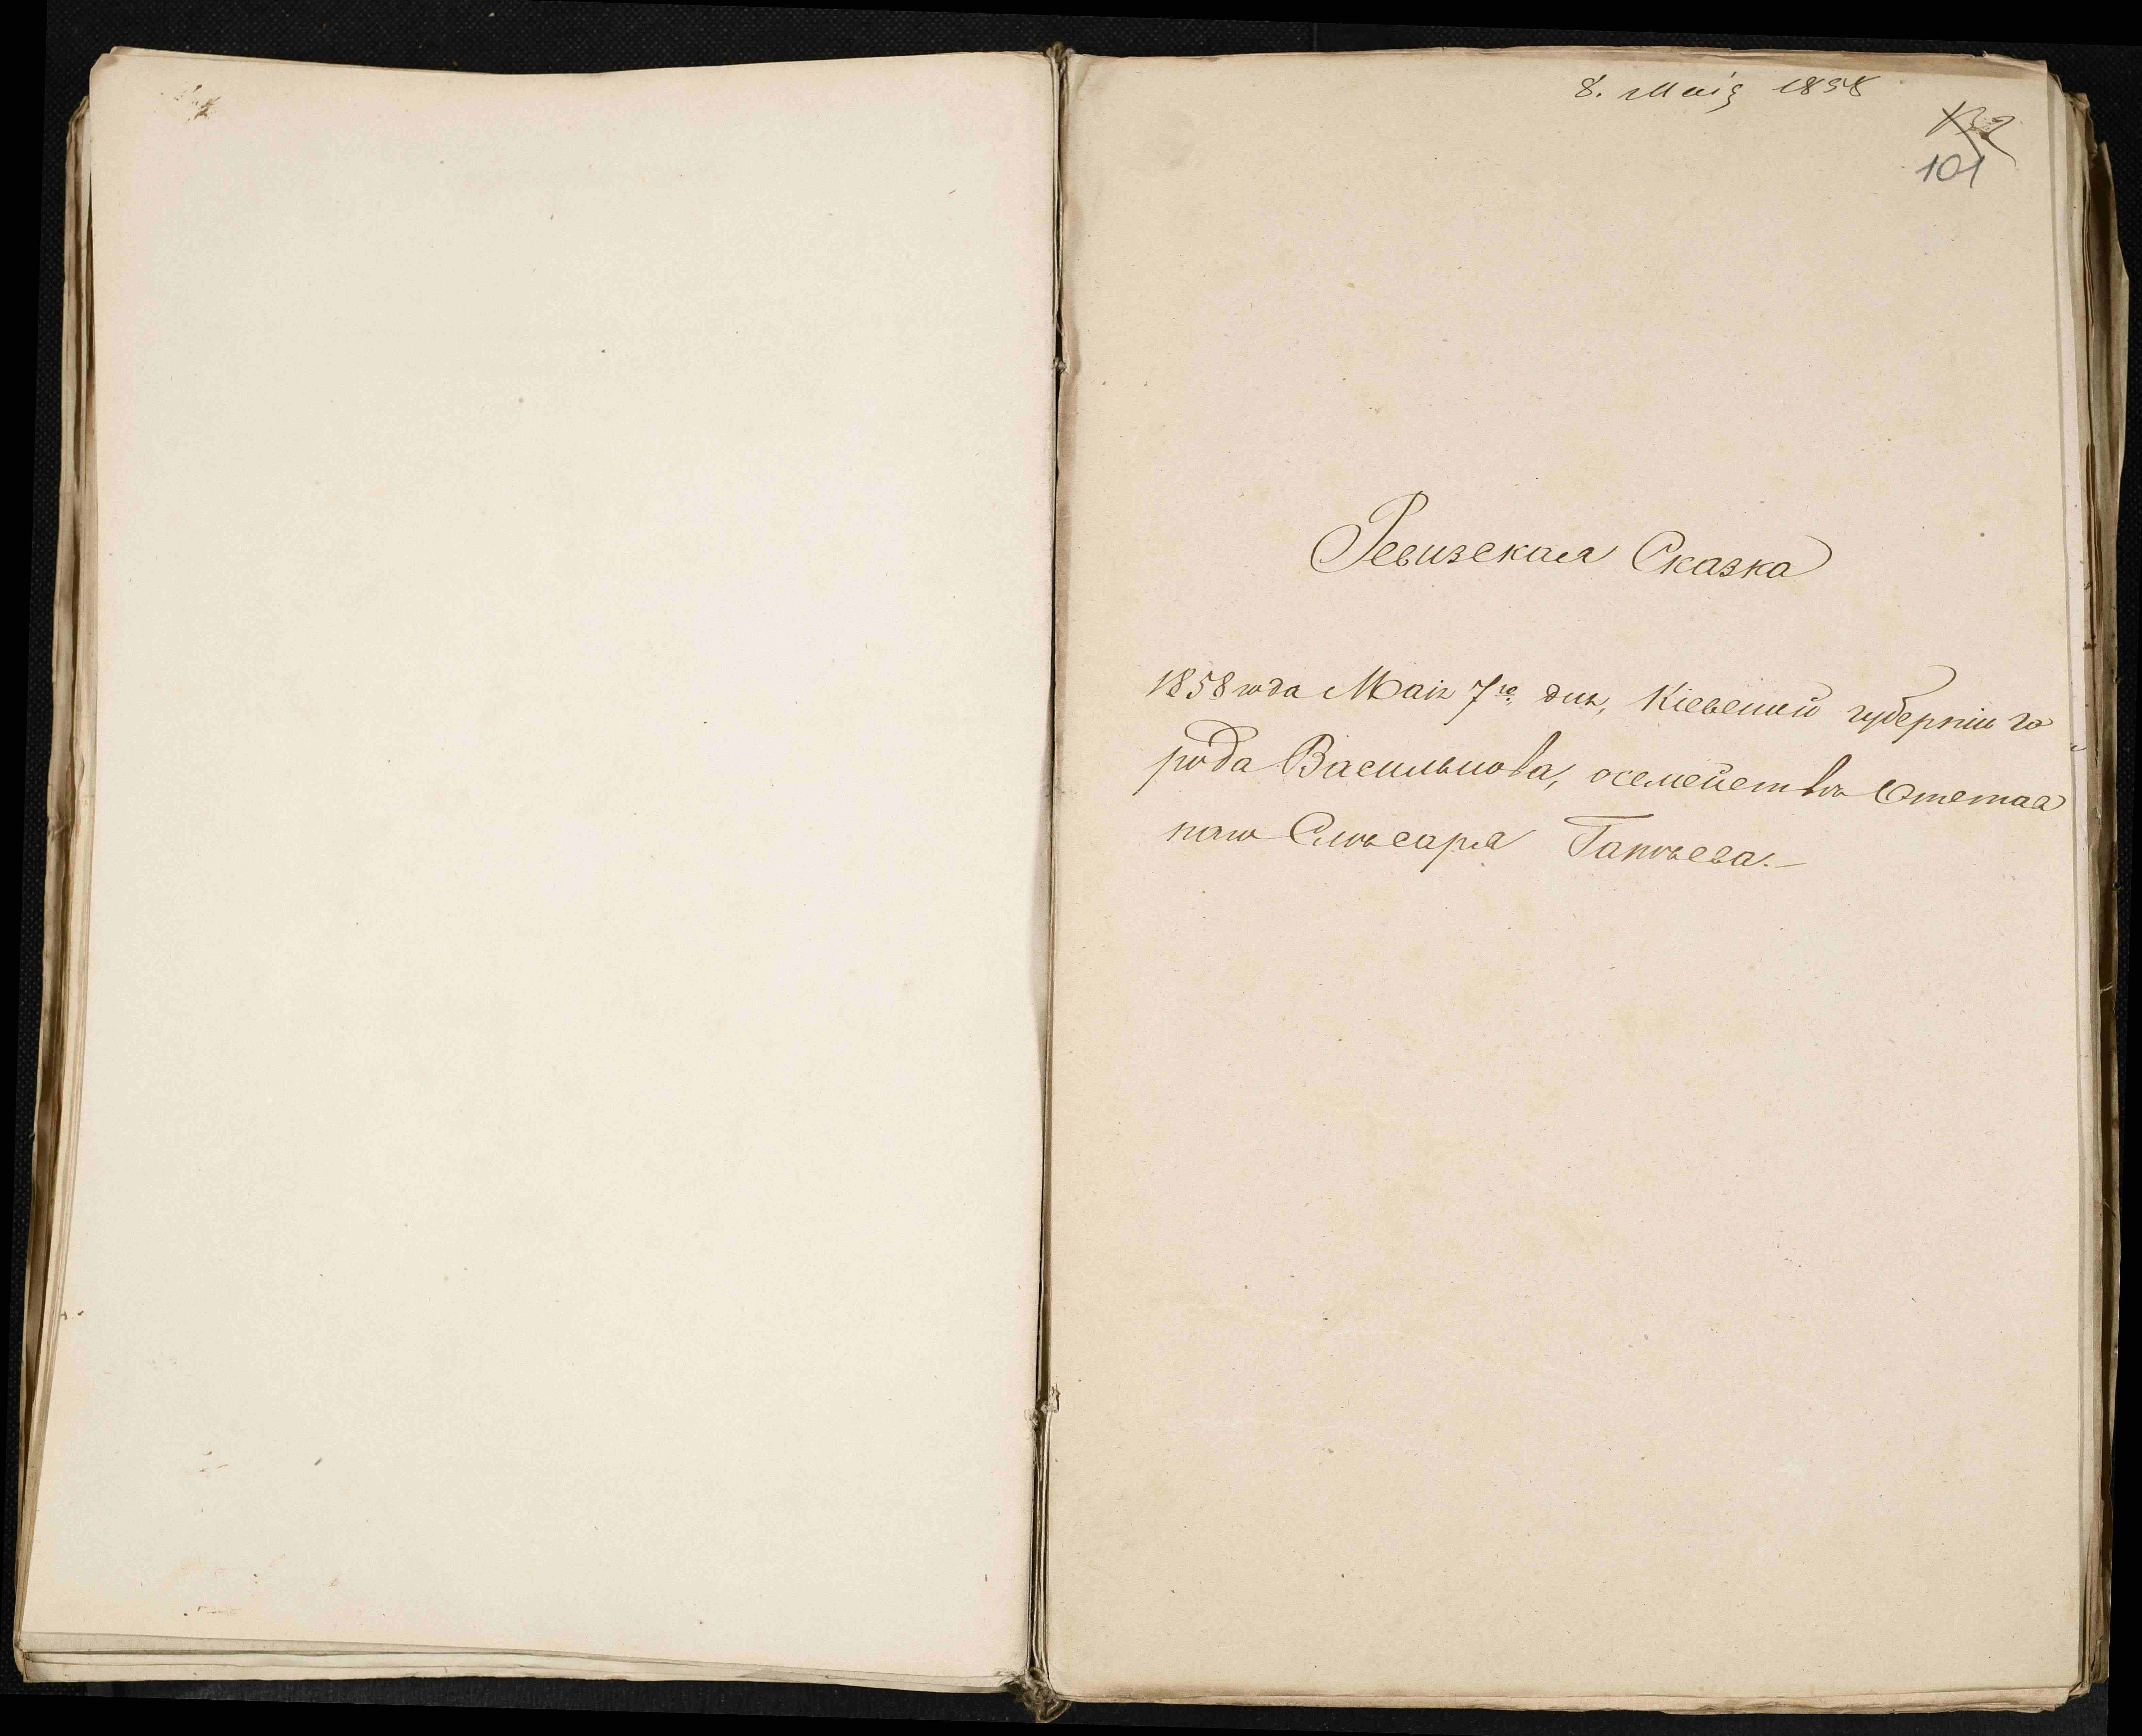 8. Маія 1858
101
Ревизская Сказка
1858 года Маія 7го дня, Кіевской губерніи го
рода Василькова, осемействѣ Отстав
наго Слѣсаря